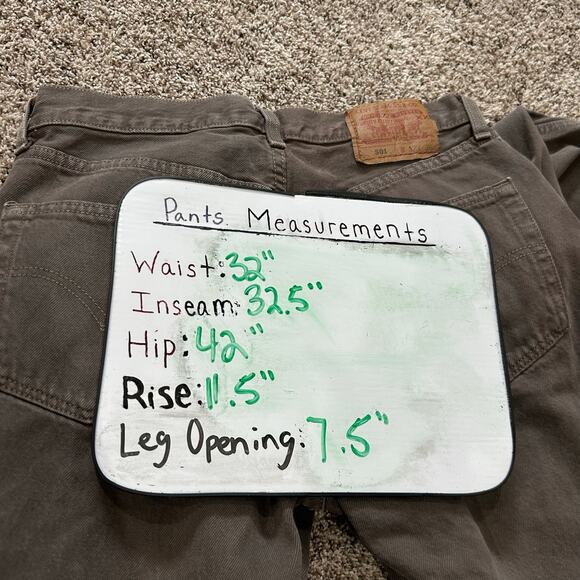 501
Pants Measurements
Waist: 32"
Inseam: 32.5"
Hip: 42"
Rise: 11.5"
Leg Opening: 7.5"